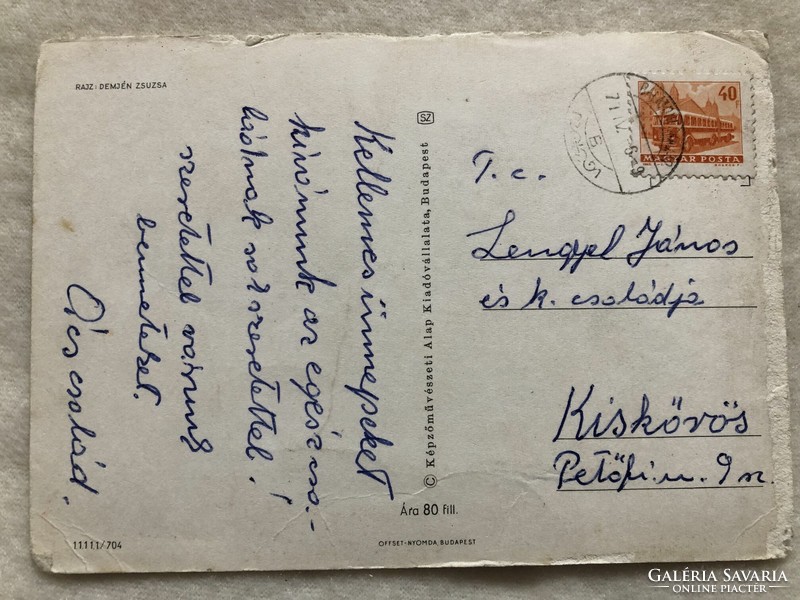 RAJZ: DEMJÉN ZSUZSA
Kellemes ünnepeket
kívánunk az egész cso-
ládnak sok szeretettel!
szeretettel várunk
benneteket.
Ács család.
11111/704
SZ
© Képzőművészeti Alap Kiadóvállalata, Budapest
Ára 80 fill.
OFFSET-NYOMDA, BUDAPEST
40
MAGYAR POSTA
T. c.
Lengyel János
és k. családja
Kiskőrös
Petőfi u. 9 sz.
GALÉRIA SAVARIA
ONLINE PIACTÉR
WWW.GALERIASAVARIA.HU